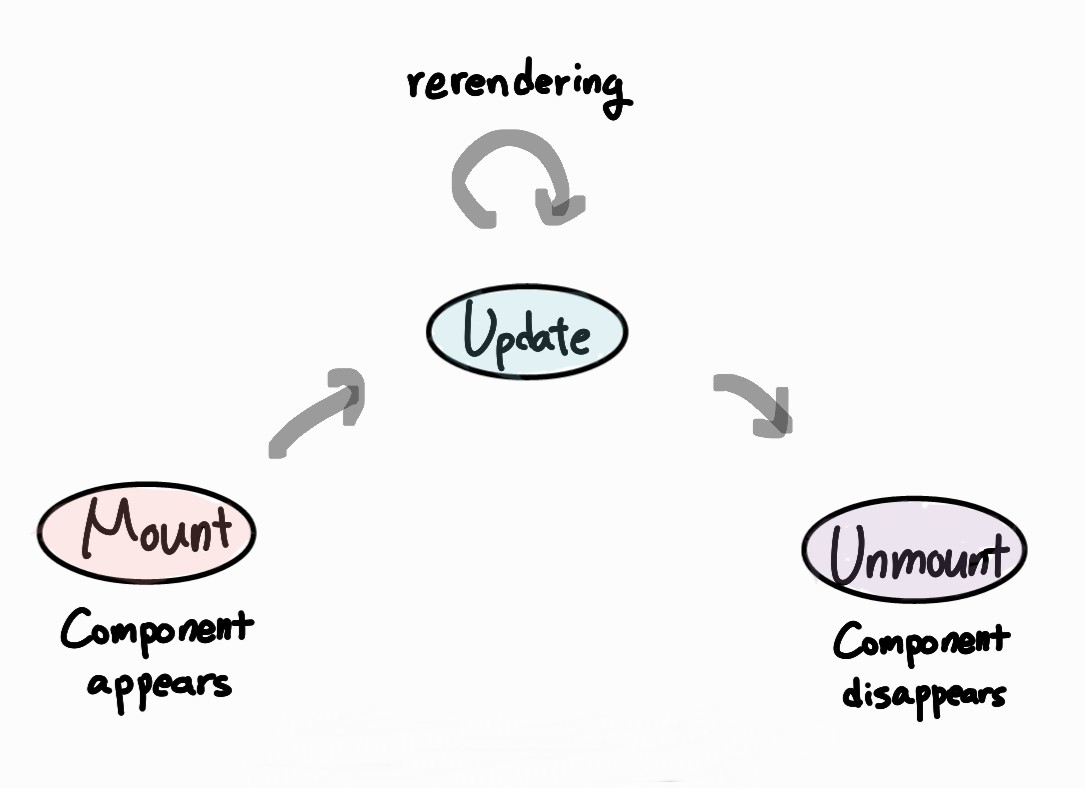 rerendering
Update
Mount
Component
appears
Unmount
Component
disappears